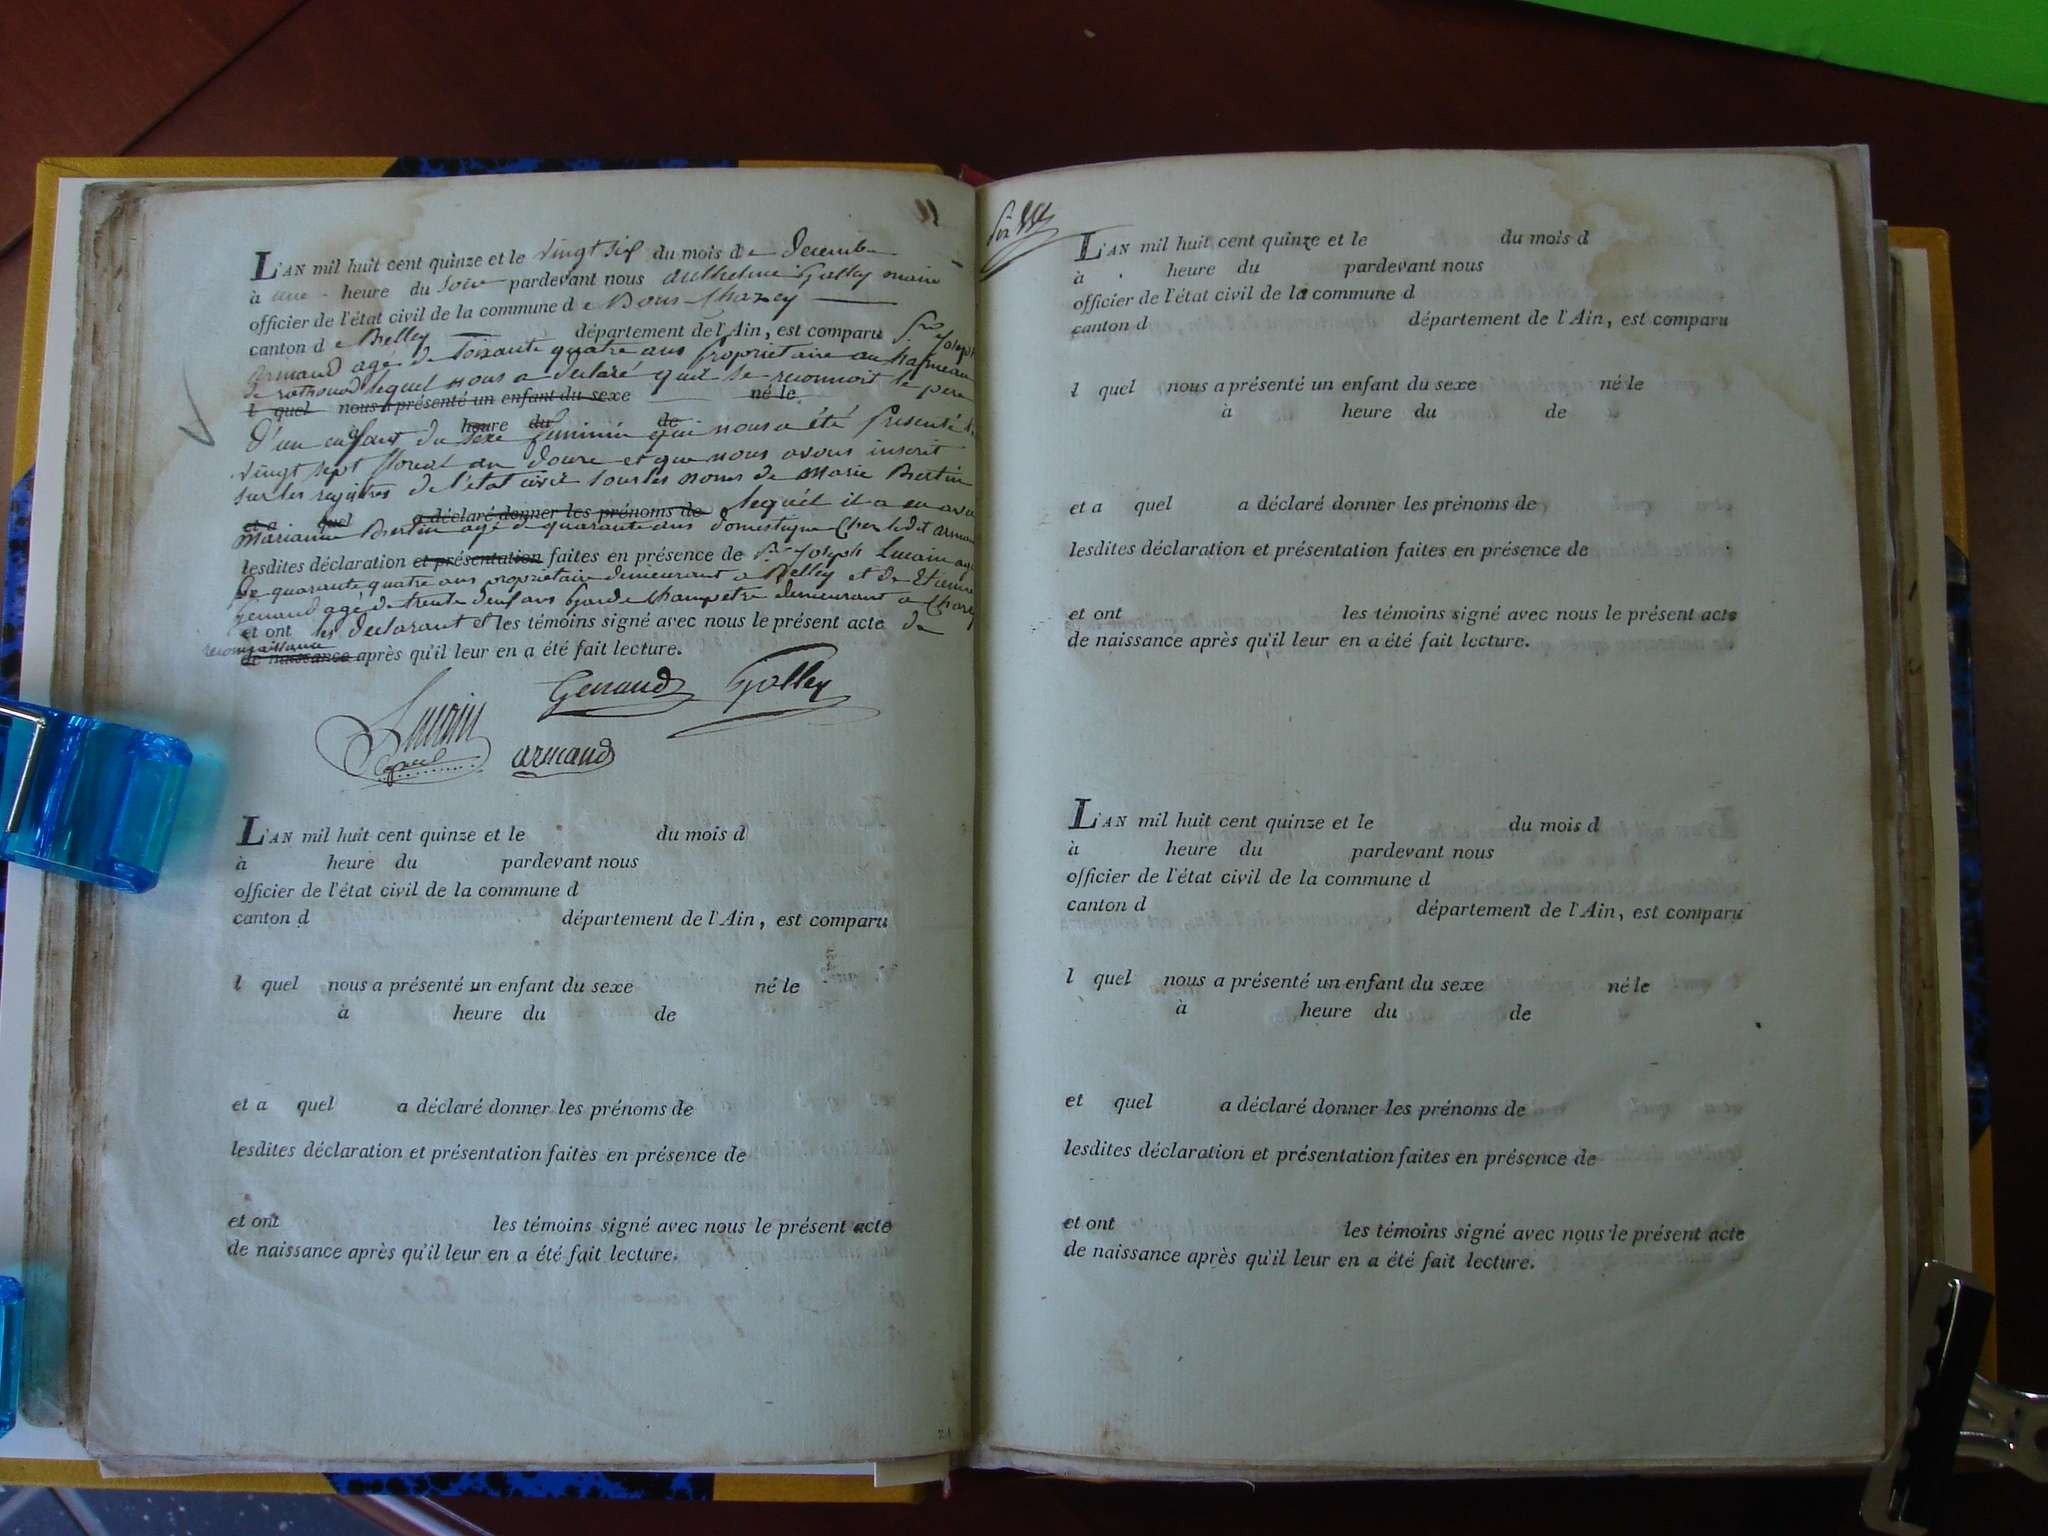 L'AN mil huit cent quinze et le vingt six du mois de decembre
à une heure du soir pardevant nous anthelme Golley maire
officier de l'état civil de la commune de Bons Chazey
canton de Belley département de l'Ain, est comparu Sr. Joseph
armand agé de soixante quatre ans propriétaire au hameau
de rothonod lequel nous a declaré qu'il se reconnoit le pere
l quel nous a présenté un enfant du sexe né le
heure du de
D'un enfant du sexe feminin qui nous a été presenté le
vingt sept floreal an douze et que nous avons inscrit
sur les registres de l'état civil sous les noms de Marie Bertin
et a quel a déclaré donner les prénoms de lequel il a eu avec
Marianne Bertin agé de quarante ans domestique chez ledit armand
lesdites déclaration et présentation faites en présence de Sr. Joseph agé
De quarante quatre ans proprietaire demeurant a Belley et de Etienne
Genaud agé de trente deux ans Garde champetre demeurant a Chazey
et ont les declarant et les témoins signé avec nous le présent acte de
reconnaissance
de naissance après qu'il leur en a été fait lecture.
Genaud Golley
armand
L'AN mil huit cent quinze et le du mois d
à heure du pardevant nous
officier de l'état civil de la commune d
canton d département de l'Ain, est comparu
l quel nous a présenté un enfant du sexe né le
à heure du de
et a quel a déclaré donner les prénoms de
lesdites déclaration et présentation faites en présence de
et ont les témoins signé avec nous le présent acte
de naissance après qu'il leur en a été fait lecture.
L'AN mil huit cent quinze et le du mois d
à heure du pardevant nous
officier de l'état civil de la commune d
canton d département de l'Ain, est comparu
l quel nous a présenté un enfant du sexe né le
à heure du de
et a quel a déclaré donner les prénoms de
lesdites déclaration et présentation faites en présence de
et ont les témoins signé avec nous le présent acte
de naissance après qu'il leur en a été fait lecture.
L'AN mil huit cent quinze et le du mois d
à heure du pardevant nous
officier de l'état civil de la commune d
canton d département de l'Ain, est comparu
l quel nous a présenté un enfant du sexe né le
à heure du de
et quel a déclaré donner les prénoms de
lesdites déclaration et présentation faites en présence de
et ont les témoins signé avec nous le présent acte
de naissance après qu'il leur en a été fait lecture.